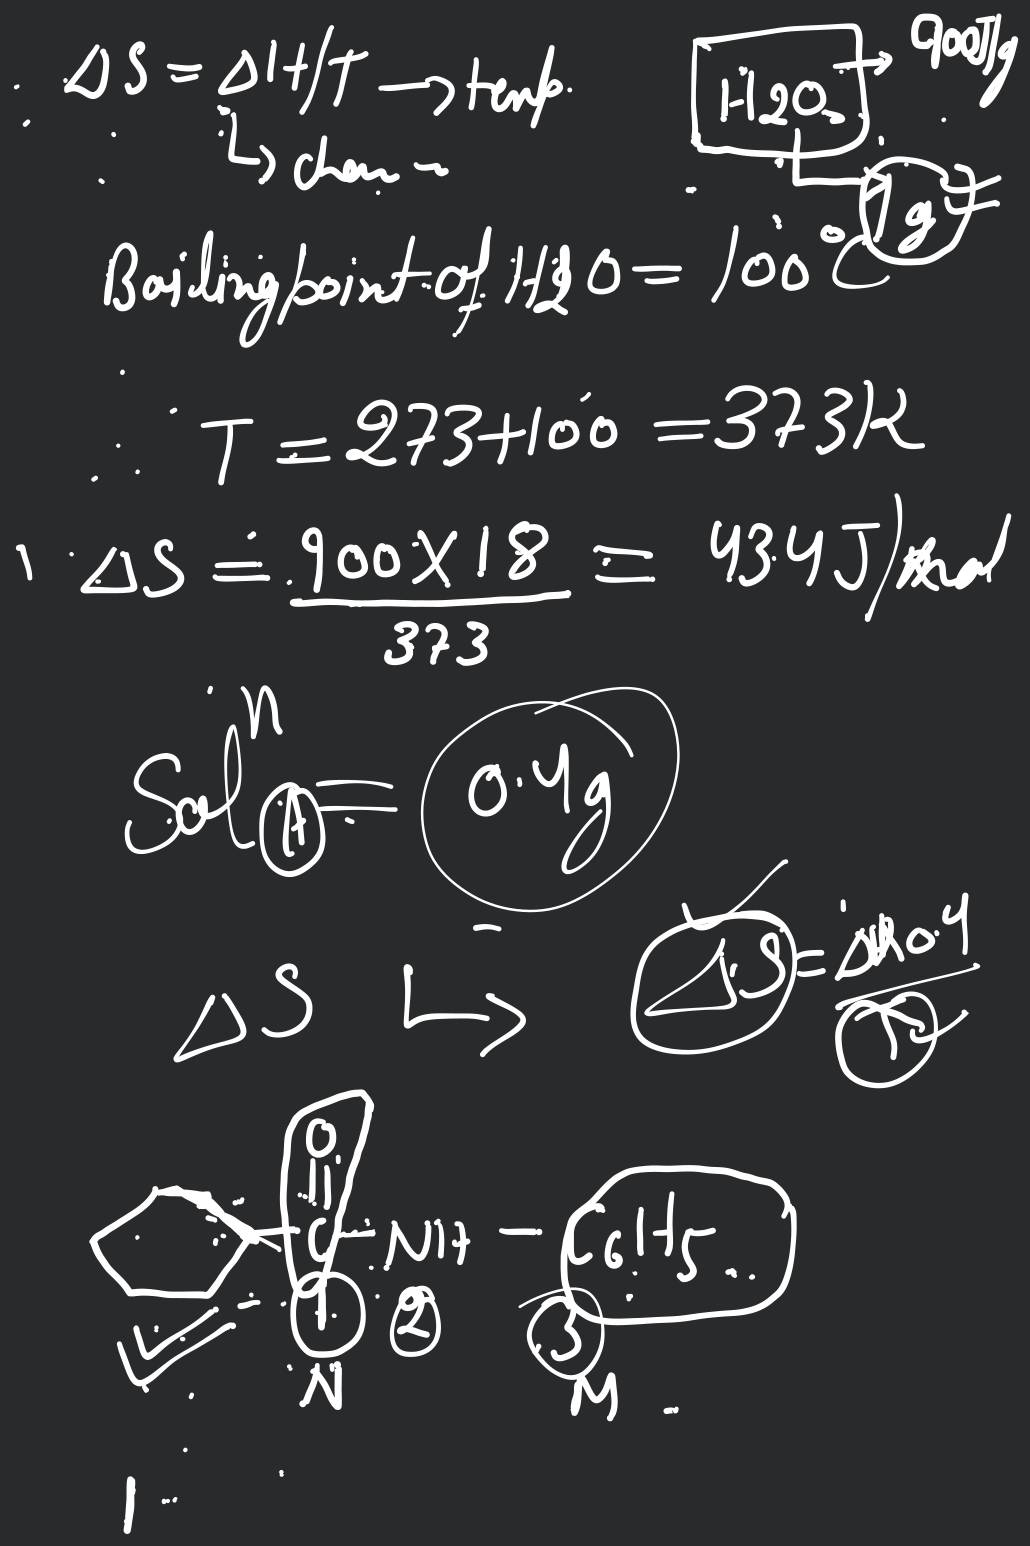 ∴ ΔS = ΔH/T → temp.
H2O → 900J/g
1g
Boiling point of H2O = 100°C
∴ T = 273+100 = 373K
ΔS = 900X18 = 434J/
373
Solⁿ A = 0.4g
ΔS ↳ ΔS = 0.4
T
O
C - NH - C6H5
1 2 3
N M
1